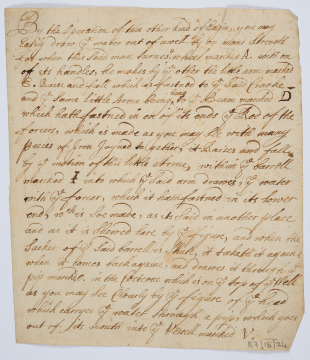 By the operation of this other kind of Engin, you may
Easily draw yᵉ water out of a well & by one mans Strength
for when this said man turnes yᵉ wheel marked A. with on
of its handles, he makes by yᵉ other the little arm marked
C. Raise and fall which is fastned to yᵉ said Cranke
and yᵉ same little Arme being to yᵉ Beam marked D
which hath fastned in on of its ends yᵉ Rod of the
forcers, which is made as you may see with many
peeces of Iron Joyned together, & Raises and falls
by yᵉ motion of this little Arme, within yᵉ barrell
marked I into which yᵉ said arm drawes yᵉ water
with yᵉ forcer, which it has fastned in its lower
end, is soe made, as it is said in another place
and as it is shewed here by yᵉ figure, and when the
Sucker of yᵉ said barrell is, it taketh it againe
when it comes back againe, and drawes it through yᵉ
pipe marked in the Cisterne which is on yᵉ top of yᵉ well
as you may see Clearly by yᵉ figure of yᵉ head
which carryes yᵉ water through a pipe which goes
out of its mouth into yᵉ Vessel marked V.
87/18/24